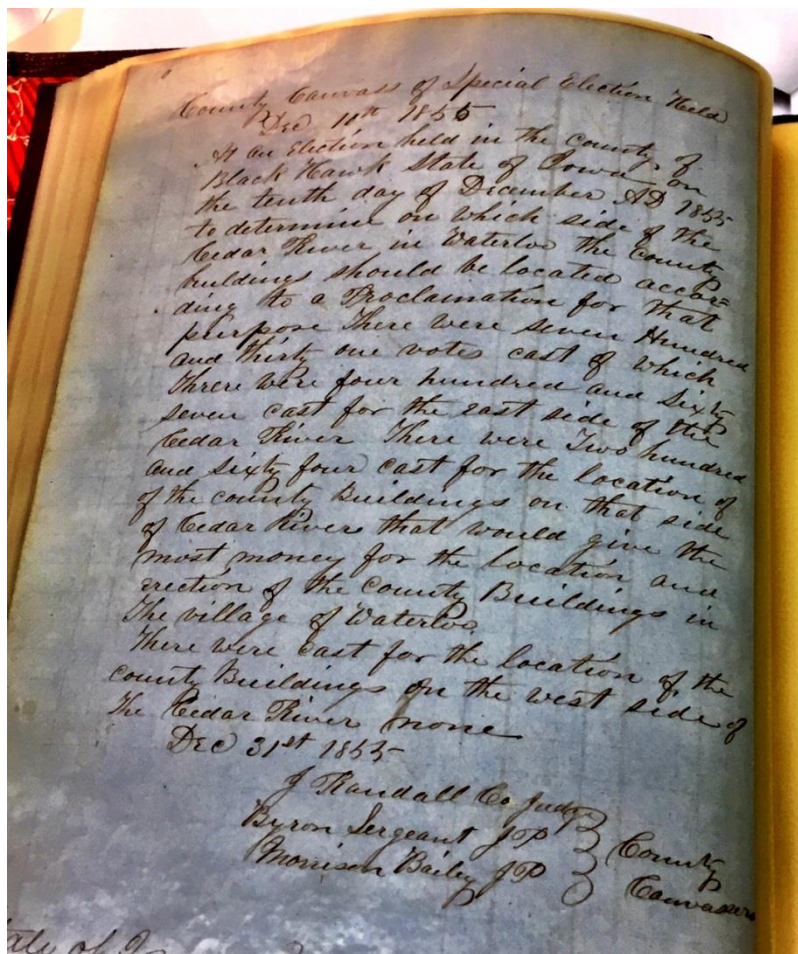 County Canvass of Special Election Held
Dec 10th 1855
At an Election held in the county of
Black Hawk State of Iowa on
the tenth day of December AD 1855
to determine on which side of the
Cedar River in Waterloo the County
buildings should be located accor=
ding to a Proclamation for that
purpose There were seven Hundred
and thirty one votes cast of which
There were four hundred and Sixty
seven cast for the east side of the
Cedar River There were Two hundred
and Sixty four cast for the location of
of the county Buildings on that side
of Cedar River that would give the
most money for the location and
erection of the county Buildings in
The village of Waterloo.
There were cast for the location of the
county Buildings on the west side of
the Cedar River none
Dec 31st 1855
J Randall Co Judge
Byron Sergeant JP
Morrison Bailey JP
County
Canvassers